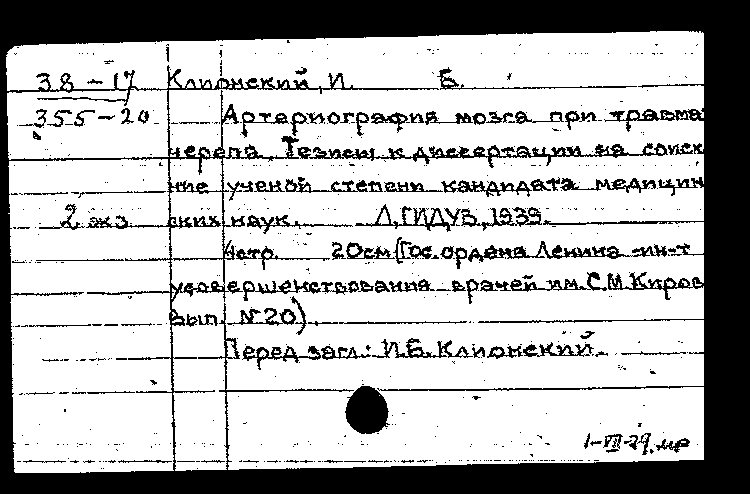 38-17 Клионский, И. Б.
355-20 Артериография мозга при травма
черепа. Тезисы к диссертации на соиск
ние ученой степени кандидата медицин
2 экз ских наук. Л, ГИДУВ, 1939.
4стр. 20см (Гос. ордена Ленина ин-т
усовершенствования врачей им. С.М. Киров
Вып. №20).
Перед загл.: И.Б. Клионский.